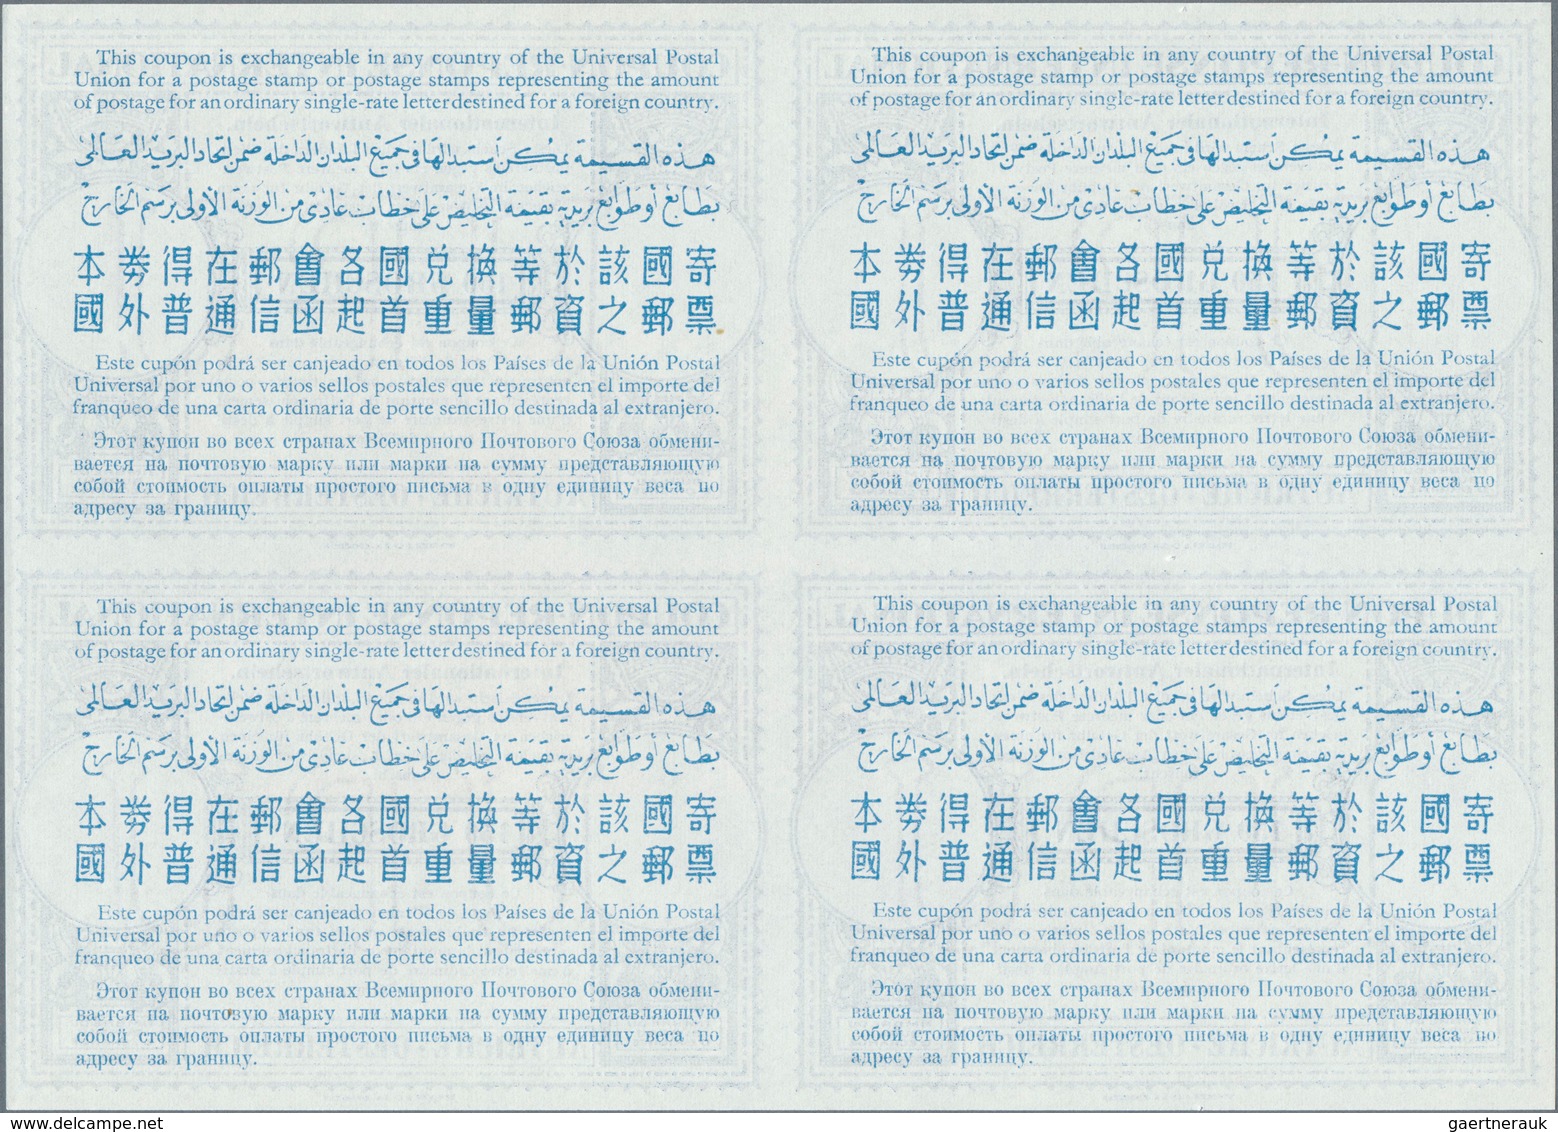 This coupon is exchangeable in any country of the Universal Postal
Union for a postage stamp or postage stamps representing the amount
of postage for an ordinary single-rate letter destined for a foreign country.
هذه القسيمة يمكن استبدالها فى جميع البلدان الداخلة ضمن اتحاد البريد العالمى
بطابع أو طوابع بريدية بقيمة التخليص على خطاب عادى من الوزنة الأولى برسم الخارج
本券得在郵會各國兌換等於該國寄
國外普通信函起首重量郵資之郵票
Este cupón podrá ser canjeado en todos los Países de la Unión Postal
Universal por uno o varios sellos postales que representen el importe del
franqueo de una carta ordinaria de porte sencillo destinada al extranjero.
Этот купон во всех странах Всемирного Почтового Союза обмени-
вается на почтовую марку или марки на сумму представляющую
собой стоимость оплаты простого письма в одну единицу веса по
адресу за границу.
This coupon is exchangeable in any country of the Universal Postal
Union for a postage stamp or postage stamps representing the amount
of postage for an ordinary single-rate letter destined for a foreign country.
هذه القسيمة يمكن استبدالها فى جميع البلدان الداخلة ضمن اتحاد البريد العالمى
بطابع أو طوابع بريدية بقيمة التخليص على خطاب عادى من الوزنة الأولى برسم الخارج
本券得在郵會各國兌換等於該國寄
國外普通信函起首重量郵資之郵票
Este cupón podrá ser canjeado en todos los Países de la Unión Postal
Universal por uno o varios sellos postales que representen el importe del
franqueo de una carta ordinaria de porte sencillo destinada al extranjero.
Этот купон во всех странах Всемирного Почтового Союза обмени-
вается на почтовую марку или марки на сумму представляющую
собой стоимость оплаты простого письма в одну единицу веса по
адресу за границу.
This coupon is exchangeable in any country of the Universal Postal
Union for a postage stamp or postage stamps representing the amount
of postage for an ordinary single-rate letter destined for a foreign country.
هذه القسيمة يمكن استبدالها فى جميع البلدان الداخلة ضمن اتحاد البريد العالمى
بطابع أو طوابع بريدية بقيمة التخليص على خطاب عادى من الوزنة الأولى برسم الخارج
本券得在郵會各國兌換等於該國寄
國外普通信函起首重量郵資之郵票
Este cupón podrá ser canjeado en todos los Países de la Unión Postal
Universal por uno o varios sellos postales que representen el importe del
franqueo de una carta ordinaria de porte sencillo destinada al extranjero.
Этот купон во всех странах Всемирного Почтового Союза обмени-
вается на почтовую марку или марки на сумму представляющую
собой стоимость оплаты простого письма в одну единицу веса по
адресу за границу.
This coupon is exchangeable in any country of the Universal Postal
Union for a postage stamp or postage stamps representing the amount
of postage for an ordinary single-rate letter destined for a foreign country.
هذه القسيمة يمكن استبدالها فى جميع البلدان الداخلة ضمن اتحاد البريد العالمى
بطابع أو طوابع بريدية بقيمة التخليص على خطاب عادى من الوزنة الأولى برسم الخارج
本券得在郵會各國兌換等於該國寄
國外普通信函起首重量郵資之郵票
Este cupón podrá ser canjeado en todos los Países de la Unión Postal
Universal por uno o varios sellos postales que representen el importe del
franqueo de una carta ordinaria de porte sencillo destinada al extranjero.
Этот купон во всех странах Всемирного Почтового Союза обмени-
вается на почтовую марку или марки на сумму представляющую
собой стоимость оплаты простого письма в одну единицу веса по
адресу за границу.
www.delcampe.net
gaertnerauk